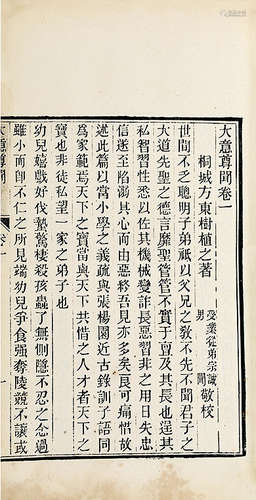 大意尊聞卷一
桐城方東樹植之著
受業從弟宗誠
男聞
敬校
世間不乏聰明子弟祇以父兄之教不先不聞君子之
大道先聖之德言靡聖管管不實于亶及其長也逞其
私智習性悉以佐其機械變詐長惡習非之用日失忠
信遂至陷溺其心而由惡終吾見亦多矣良可痛惜故
述此篇以當小學之義疏與張楊園近古錄訓子語同
為家範焉天下之寶當與天下共惜之人才者天下之
寶也非徒私望一家之弟子也
幼兒嬉戲好伐蟄驚棲殺孩蟲了無惻隱不忍之念過
雖小而即不仁之所見端幼兒爭食強奪陵競不讓或
大意尊聞
卷一
一